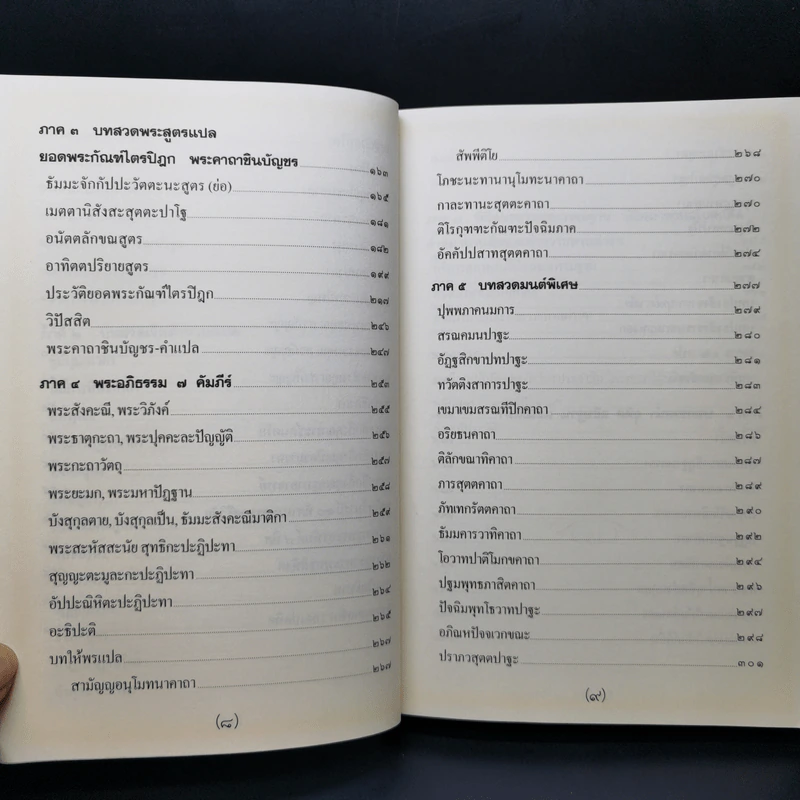 ภาค ๓ บทสวดพระสูตรแปล
ยอดพระกัณฑ์ไตรปิฎก พระคาถาชินบัญชร ๑๖๓
ธัมมะจักกัปปะวัตตะนะสูตร (ย่อ) ๑๖๕
เมตตานิสังสะสุตตะปาโฐ ๑๘๑
อนัตตลักขณสูตร ๑๘๒
อาทิตตปริยายสูตร ๑๙๙
ประวัติยอดพระกัณฑ์ไตรปิฎก ๒๑๗
วิปัสสิต ๒๔๖
พระคาถาชินบัญชร-คำแปล ๒๔๗
ภาค ๔ พระอภิธรรม ๗ คัมภีร์ ๒๕๓
พระสังคะณี, พระวิภังค์ ๒๕๕
พระธาตุกะถา, พระปุคคะละปัญญัติ ๒๕๖
พระกะถาวัตถุ ๒๕๗
พระยะมก, พระมหาปัฏฐาน ๒๕๘
บังสุกุลตาย, บังสุกุลเป็น, ธัมมะสังคะณีมาติกา ๒๕๙
พระสะหัสสะนัย สุทธิกะปะฏิปะทา ๒๖๑
สุญญะตะมูละกะปะฏิปะทา ๒๖๒
อัปปะณิหิตะปะฏิปะทา ๒๖๔
อะธิปะติ ๒๖๕
บทให้พรแปล ๒๖๗
สามัญญอนุโมทนาคาถา ๒๖๗
(๘)
สัพพีติโย ๒๖๘
โภชะนะทานานุโมทะนาคาถา ๒๗๐
กาละทานะสุตตะคาถา ๒๗๐
ติโรกุฑฑะกัณฑะปัจฉิมภาค ๒๗๒
อัคคัปปสาทสุตตคาถา ๒๗๔
ภาค ๕ บทสวดมนต์พิเศษ ๒๗๗
ปุพพภาคนมการ ๒๗๙
สรณคมนปาฐะ ๒๘๐
อัฏฐสิกขาปทปาฐะ ๒๘๑
ทวัตติงสาการปาฐะ ๒๘๓
เขมาเขมสรณทีปิกคาถา ๒๘๔
อริยธนคาถา ๒๘๖
ติลักขณาทิคาถา ๒๘๗
ภารสุตตคาถา ๒๘๙
ภัทเทกรัตตคาถา ๒๙๐
ธัมมคารวาทิคาถา ๒๙๒
โอวาทปาติโมกขคาถา ๒๙๔
ปฐมพุทธภาสิตคาถา ๒๙๖
ปัจฉิมพุทโธวาทปาฐะ ๒๙๗
อภิณหปัจจเวกขณะ ๒๙๘
ปราภวสุตตปาฐะ ๓๐๑
(๙)